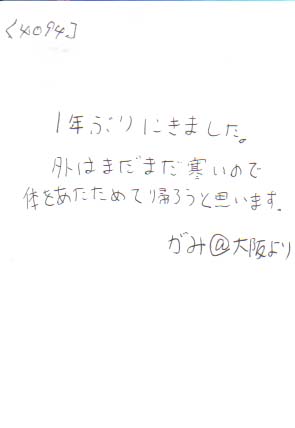 〈4094〉
1年ぶりにきました。
外はまだまだ寒いので
体をあたためて帰ろうと思います。
がみ@大阪より